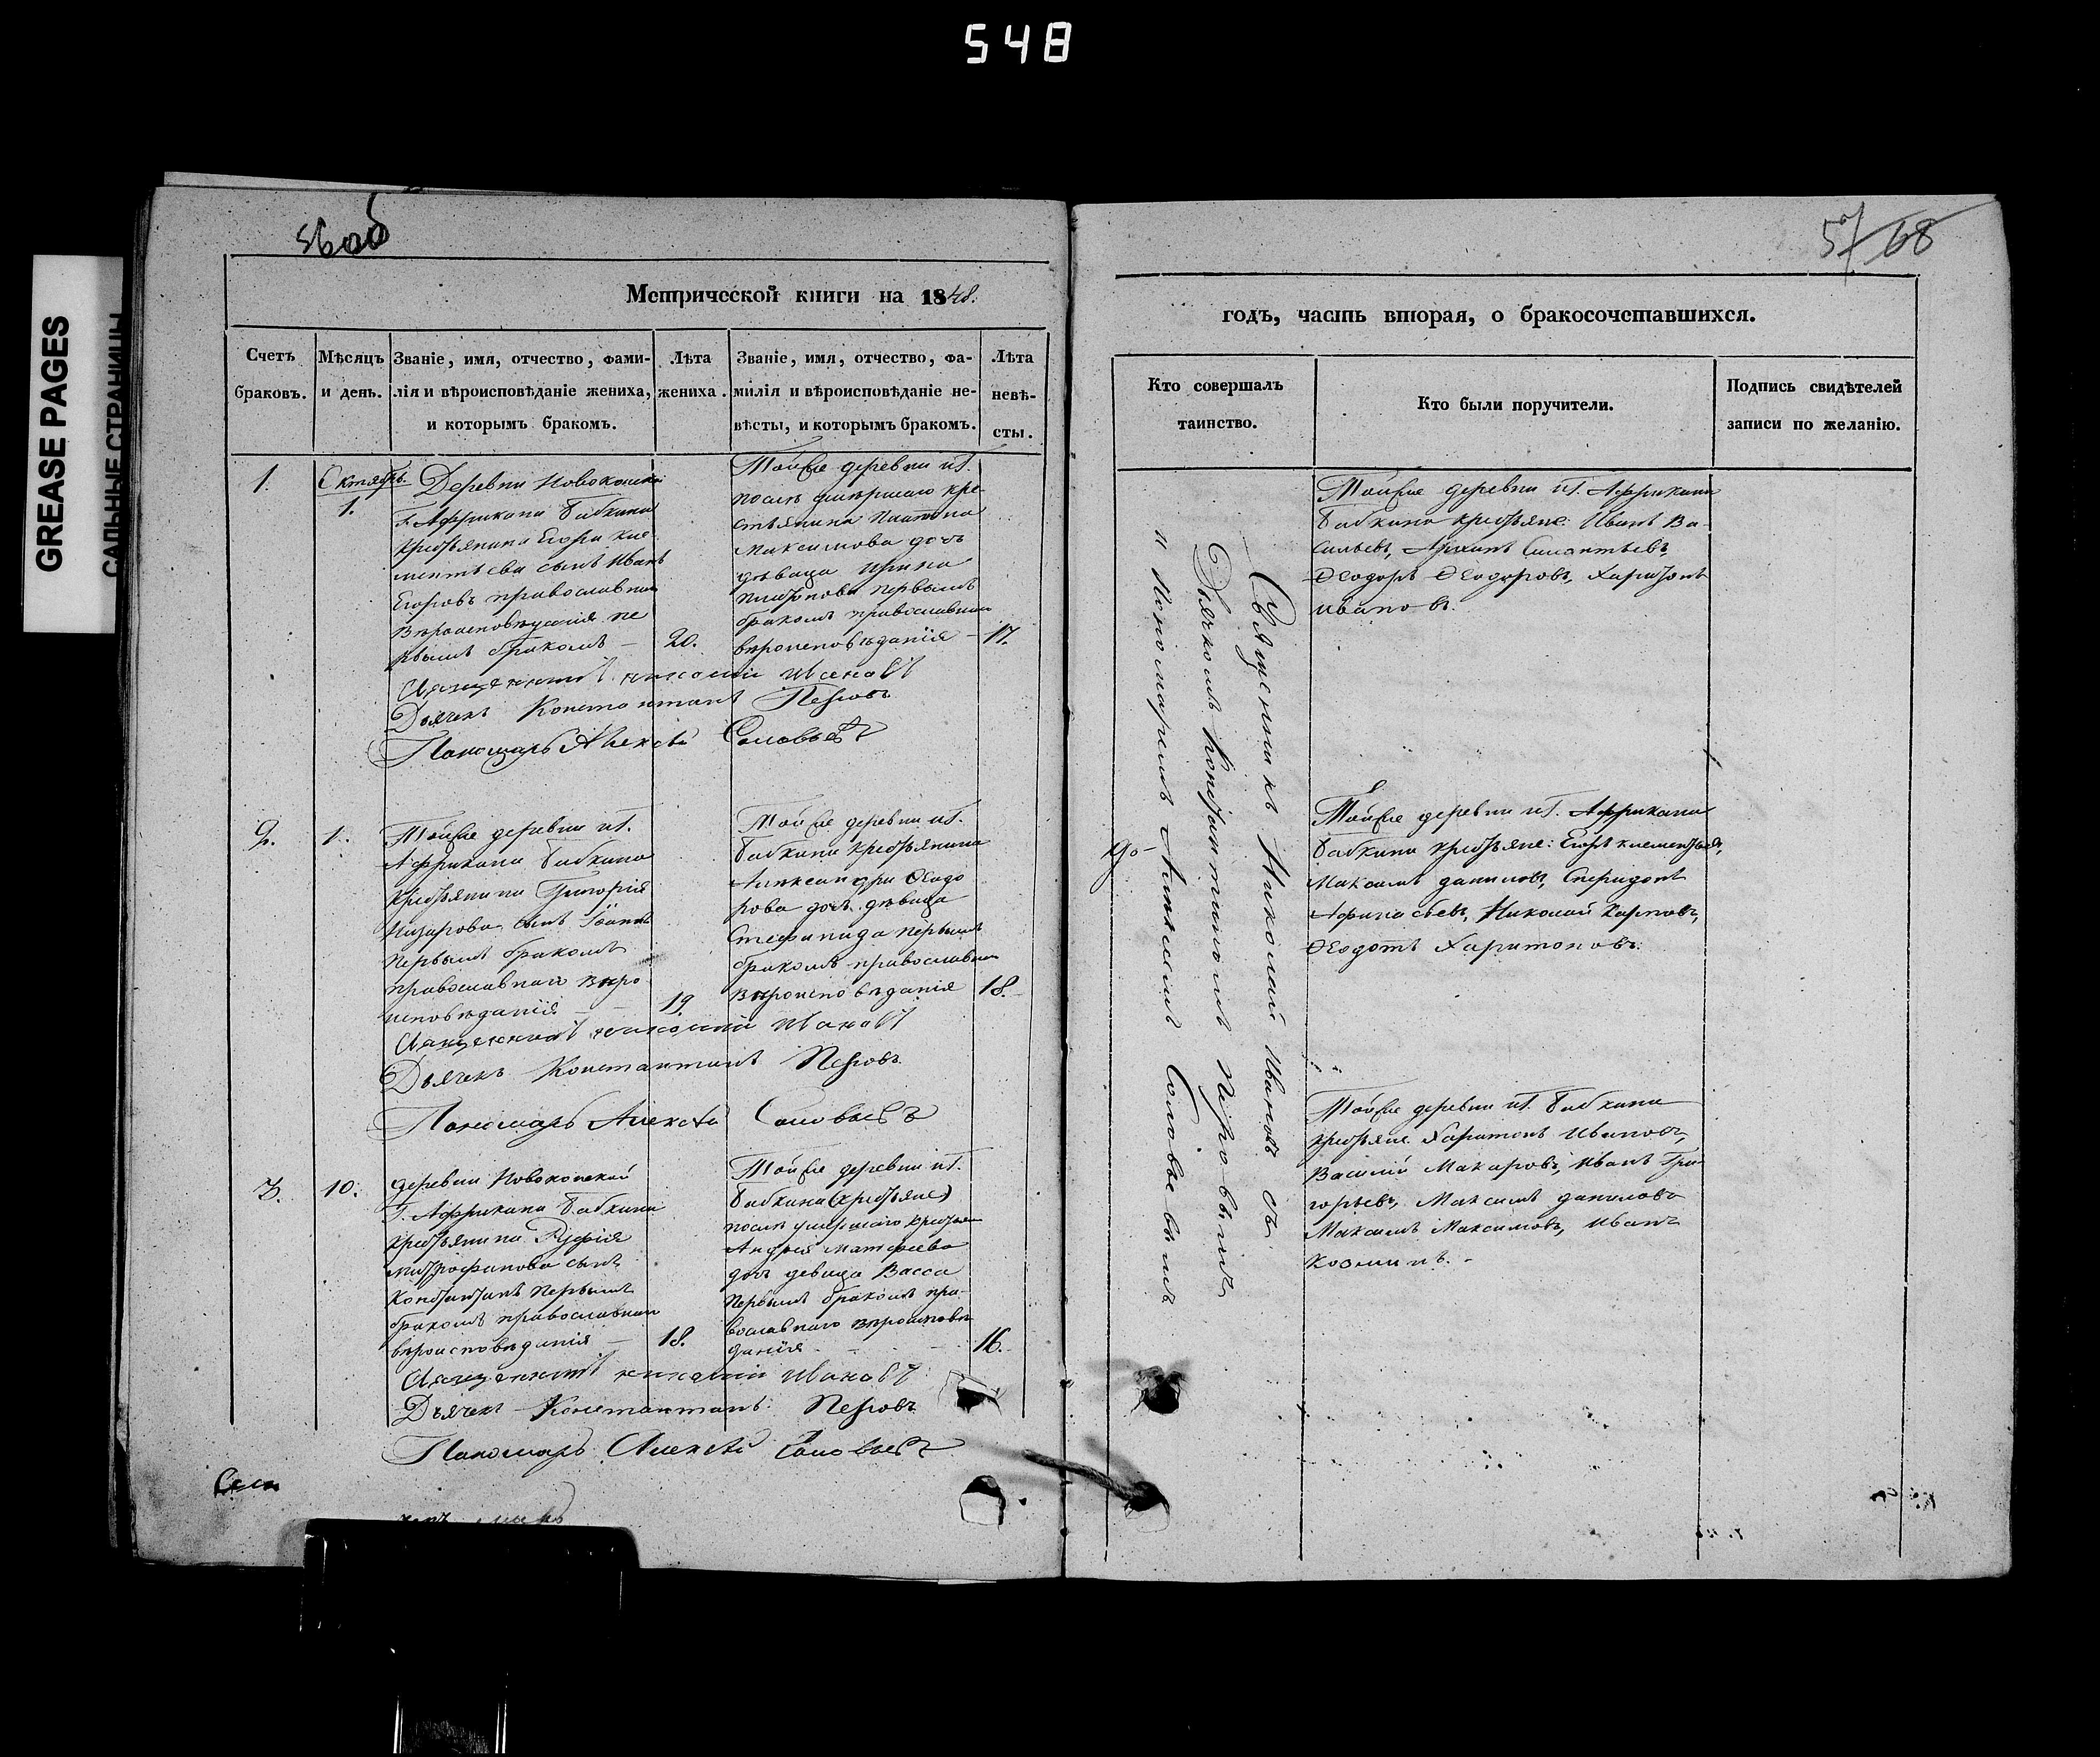 548
GREASE PAGES
САЛЬНЫЕ СТРАНИЦЫ
56об
57 68
Метрической книги на 1848.
годъ, часть вторая, о бракосочетавшихся.
Счетъ браковъ.
Мѣсяцъ и день.
Званіе, имя, отчество, фами-
лія и вѣроисповѣданіе жениха,
и которымъ бракомъ.
Лѣта
жениха.
Званіе, имя, отчество, фа-
милія и вѣроисповѣданіе не-
вѣсты, и которымъ бракомъ.
Лѣта
невѣ-
сты.
Кто совершалъ
таинство.
Кто были поручители.
Подпись свидѣтелей
записи по желанію.
1.
Октябрь.
1.
Деревни
Г. Африкана Бабкина
крестьянина Егора Кле
ментьева сынъ Иванъ
Егоровъ православнаго
вѣроисповѣданія пе
рвымъ бракомъ —
20.
Тойже деревни и Г.
послѣ умершаго кре-
стьянина Платона
Максимова дочь
дѣвица Ирина
Платонова первымъ
бракомъ православнаго
вѣроисповѣданія —
17.
Священникъ Николай Ивановъ
Дьячекъ Константинъ Петровъ
Пономарь Алексѣй Соловьевъ
2.
1.
Тойже деревни и Г.
Африкана Бабкина
крестьянина Григорія
Назарова сынъ Іоаннъ
первымъ бракомъ
православнаго вѣро
исповѣданія —
19.
Тойже деревни и Г.
Бабкина крестьянина
Александра Ѳеодо
рова дочь дѣвица
Стефанида первымъ
бракомъ православнаго
вѣроисповѣданія
18.
Священникъ Николай Ивановъ
Дьячекъ Константинъ Петровъ
Пономарь Алексѣй Соловьевъ
3.
10.
деревни
Г. Африкана Бабкина
крестьянина
Митрофанова сынъ
Константинъ первымъ
бракомъ православнаго
вѣроисповѣданія —
18.
Тойже деревни и Г.
Бабкина (крестьяне)
послѣ умершаго крестьян
Андрея Матфеева
дочь девица Васса
первымъ бракомъ пра-
вославнаго вѣроисповѣ
данія
16.
Священникъ Николай Ивановъ
Дьячекъ Константинъ Петровъ
Пономарь Алексѣй Соловьевъ
Священникъ Николай Ивановъ съ
Дьячкомъ Константиномъ Петровымъ
и Пономаремъ Алексѣемъ Соловьевымъ
Тойже деревни и Г. Африкана
Бабкина крестьяне: Иванъ Ва-
сильевъ,
Ѳеодоръ Ѳеодоровъ, Харитонъ
Ивановъ.
Тойже деревни и Г. Африкана
Бабкина крестьяне: Егоръ Клементьевъ,
Максимъ Даниловъ, Спиридонъ
Афанасьевъ, Николай Карповъ,
Ѳеодотъ Харитоновъ.
Тойже деревни и Г. Бабкина
крестьяне Харитонъ Ивановъ,
Василий Макаровъ, Иванъ Гри-
горьевъ, Максимъ Даниловъ
Максимъ Максимовъ, Иванъ